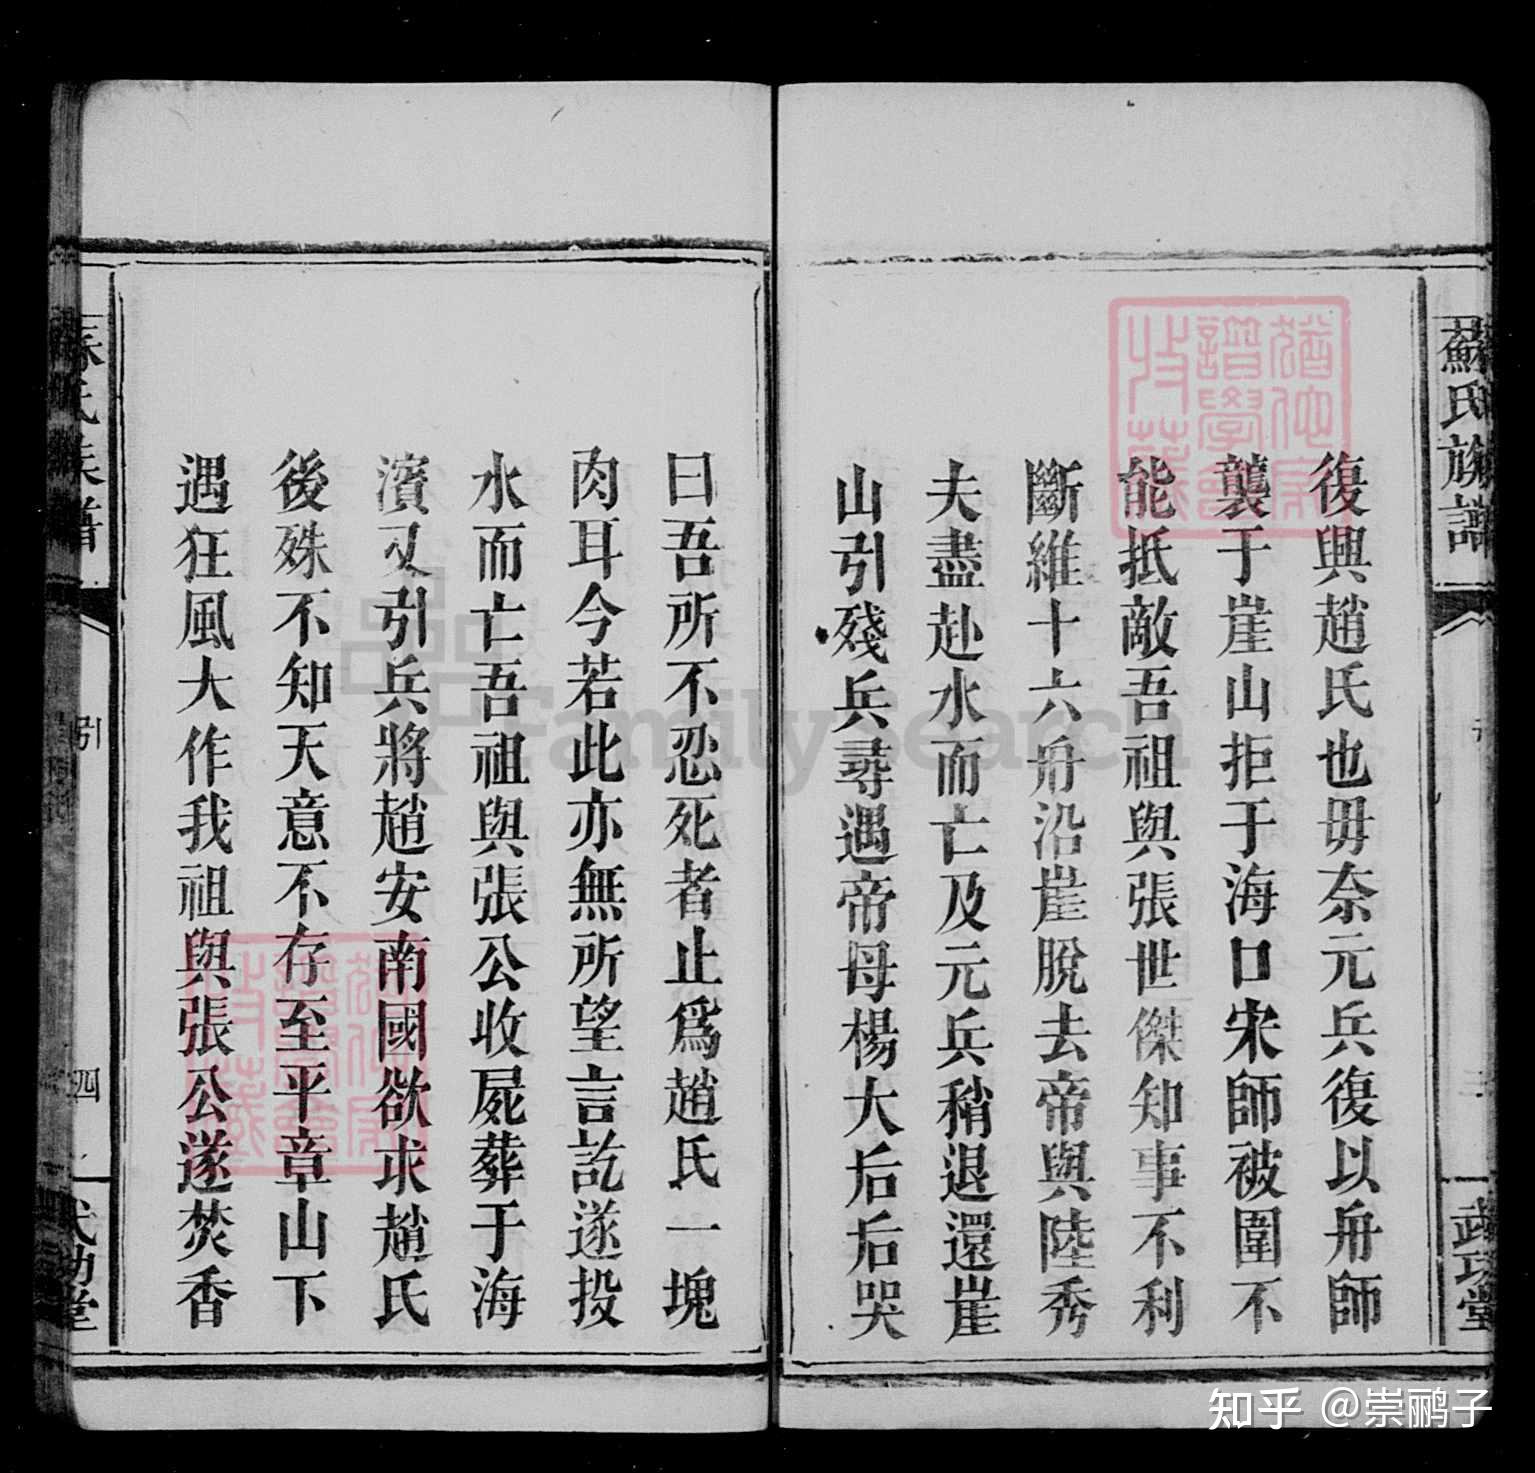 蘇氏族譜
三
武功堂
復興趙氏也毋奈元兵復以舟師
襲于崖山拒于海口宋師被圍不
能抵敵吾祖與張世傑知事不利
斷維十六舟沿崖脫去帝與陸秀
夫盡赴水而亡及元兵稍退還崖
山引殘兵尋遇帝母楊大后后哭
曰吾所不忍死者止爲趙氏一塊
肉耳今若此亦無所望言訖遂投
水而亡吾祖與張公收屍葬于海
濱又引兵將趙安南國欲求趙氏
後殊不知天意不存至平章山下
遇狂風大作我祖與張公遂焚香
蘇氏族譜
引
四
武功堂
猶他家譜學會收藏
猶他家譜學會收藏
FamilySearch
知乎 @崇鹂子